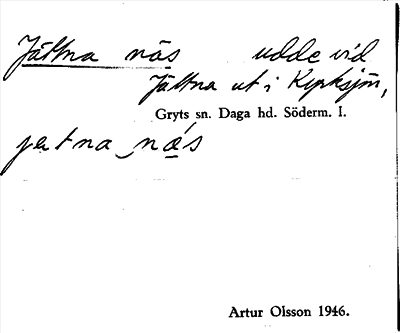 Jättna näs udde vid
Jättna ut i Kyrksjön,
Gryts sn. Daga hd. Söderm. I.
jetna næs
Artur Olsson 1946.